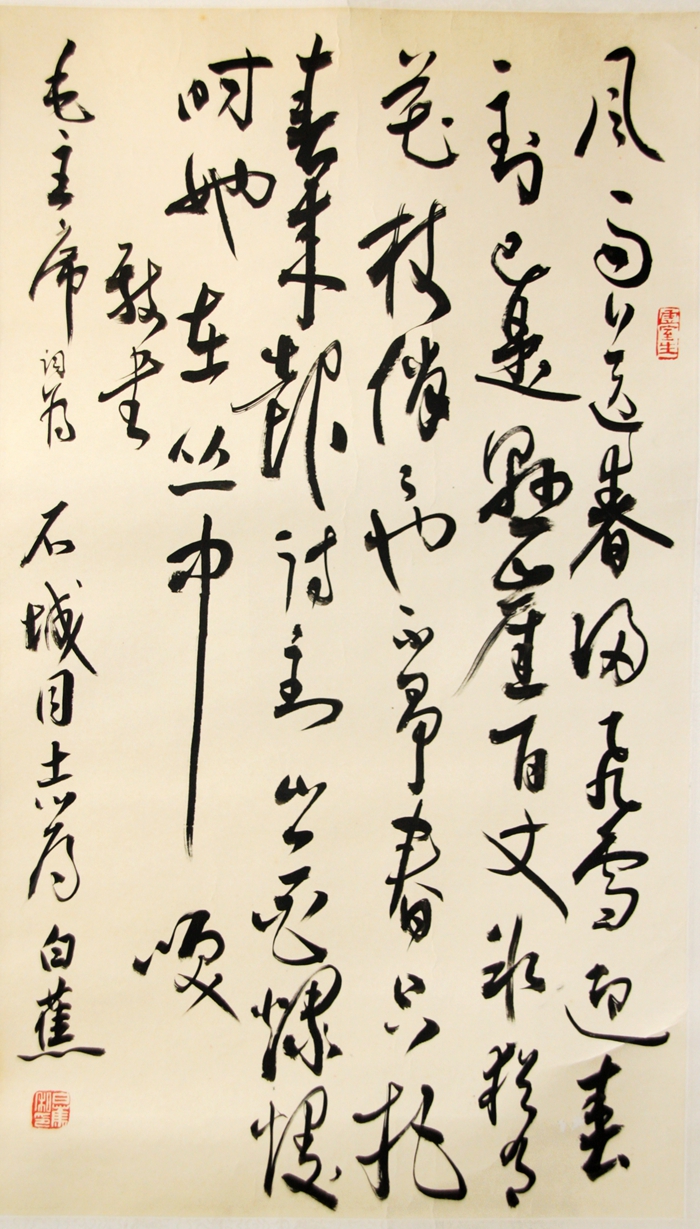 风雨送春归飞雪迎春
到已是悬崖百丈冰犹有
花枝俏々也不争春只把
春来报待到山花烂漫
时她在丛中咲
敬书
毛主席词为石城同志属白蕉